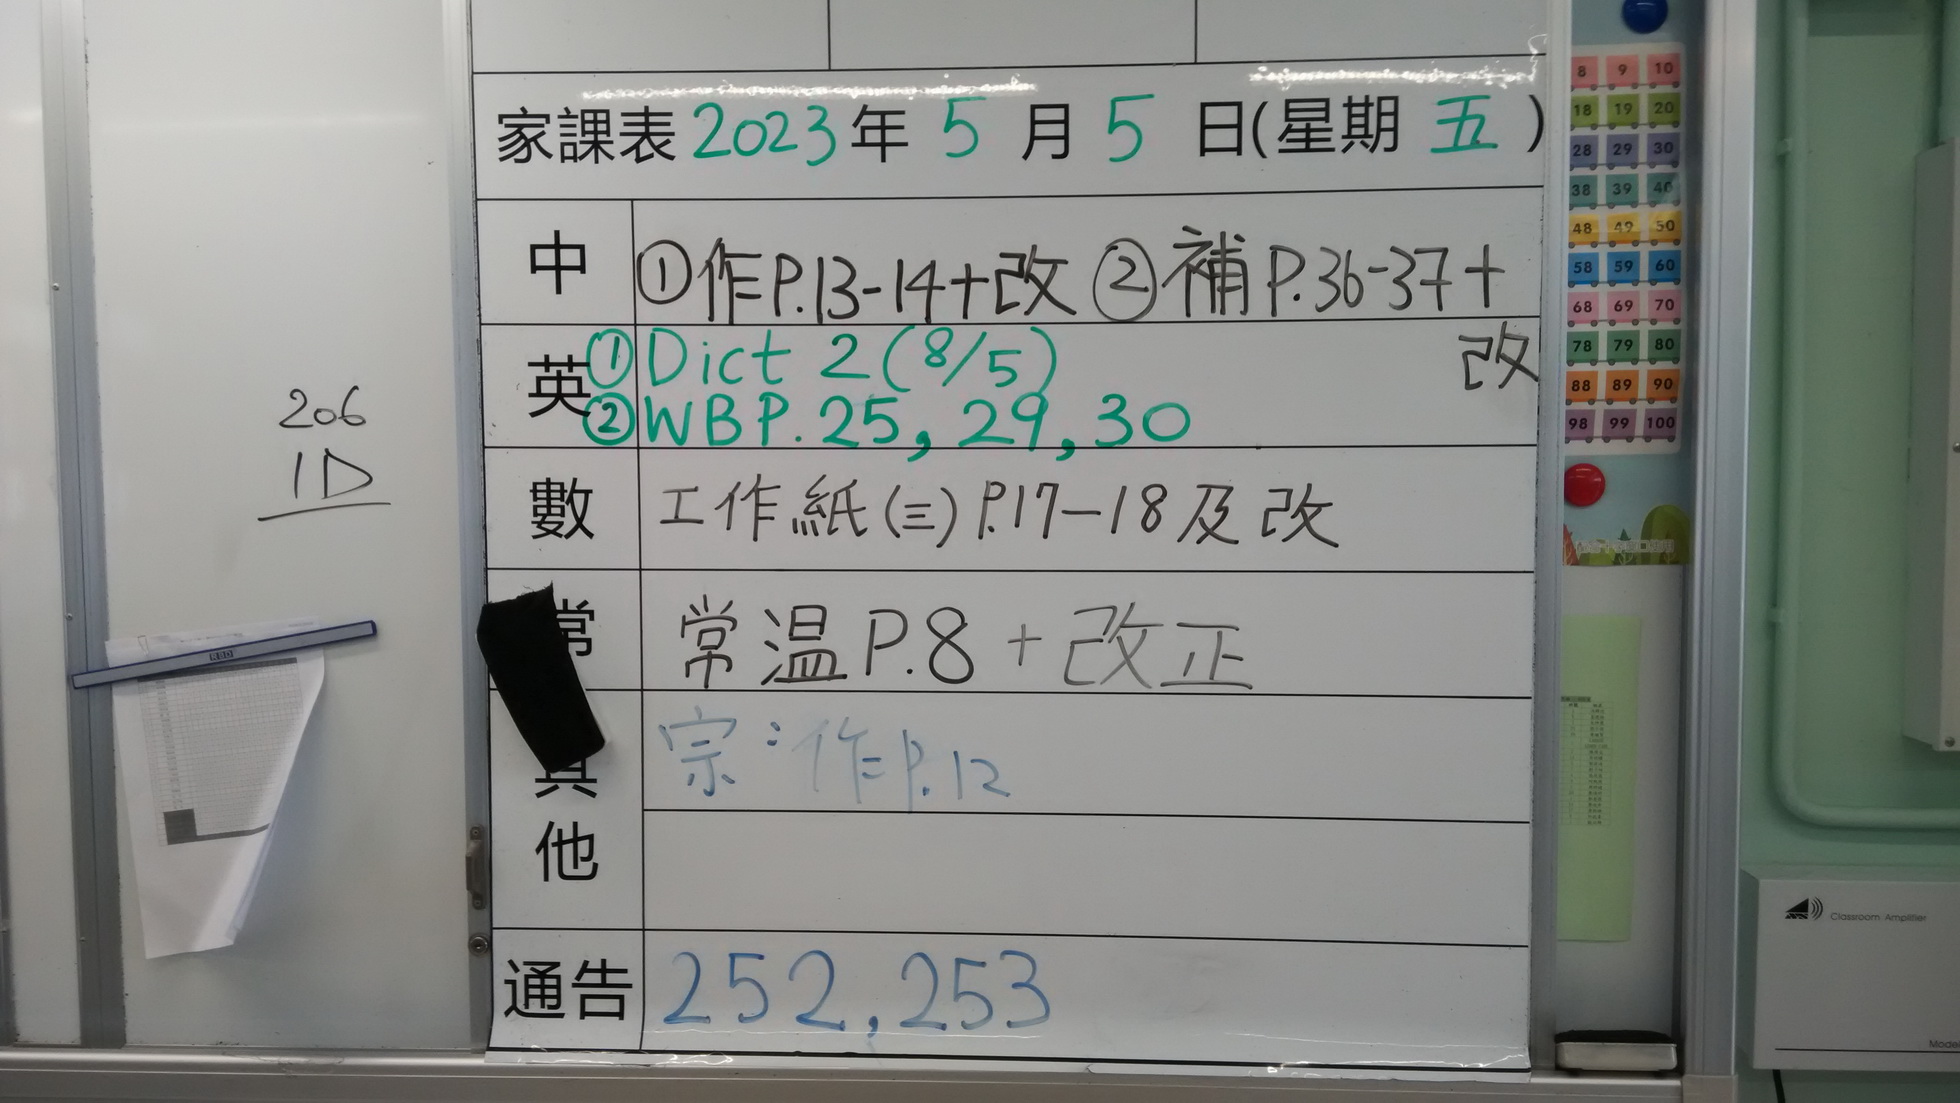 家課表 2023年 5 月 5 日(星期 五 )
中 ①作P.13-14+改 ②補P.36-37+
改
英 ①Dict 2(8/5)
②WBP.25, 29, 30
數 工作紙(三)P.17-18及改
常 常温P.8+改正
其他 宗:作P.12
通告 252,253
206
1D
8 9 10
18 19 20
28 29 30
38 39 40
48 49 50
58 59 60
68 69 70
78 79 80
88 89 90
98 99 100
Classroom Amplifier
Model